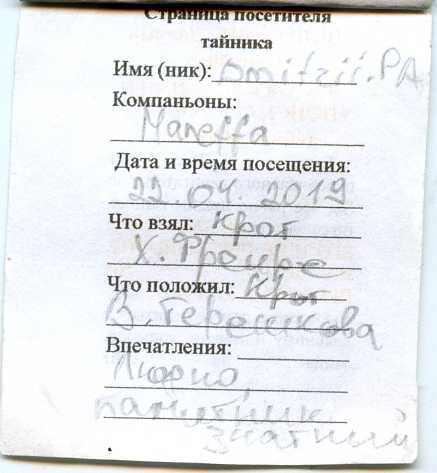 Страница посетителя
тайника
Имя (ник): Dmitrii.PA
Компаньоны:
Maneffa
Дата и время посещения:
22.04.2019
Что взял: Крот
Х. Фрейре
Что положил: Крот
В. Терешкова
Впечатления:
Людно,
памятник
знатный